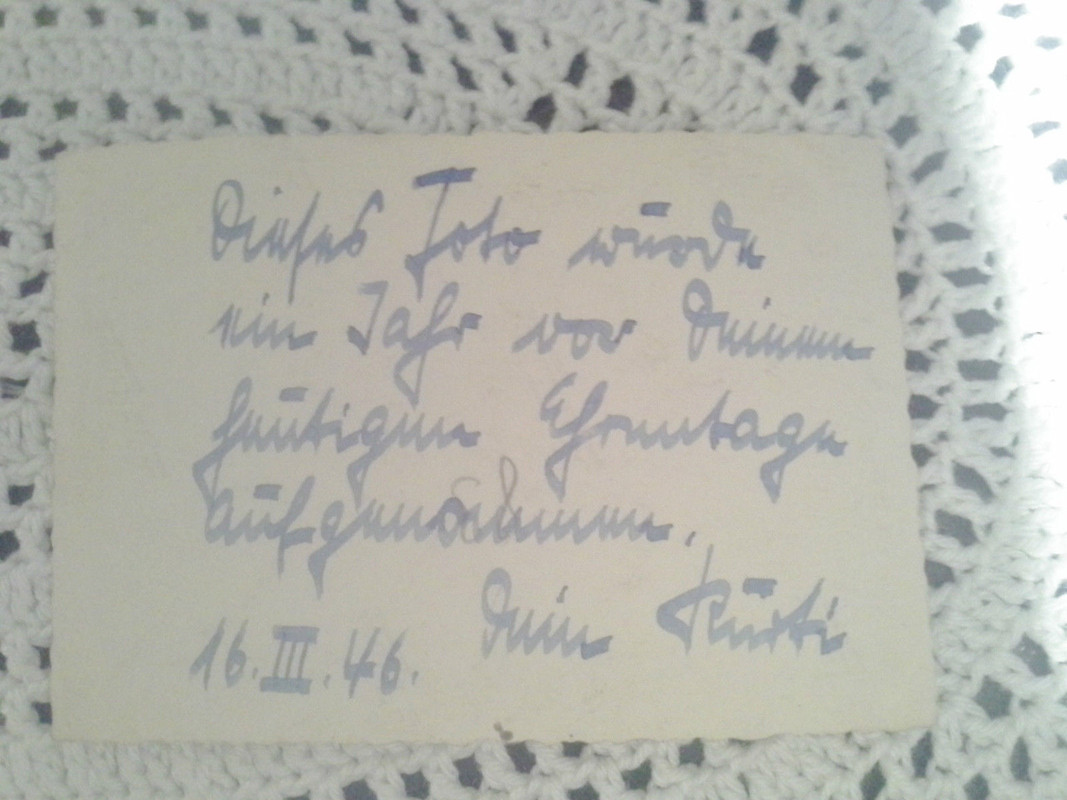 Dieses Foto wurde
ein Jahr vor Deinem
heutigen Ehrentage
aufgenommen.
Dein Kurti
16. III. 46.